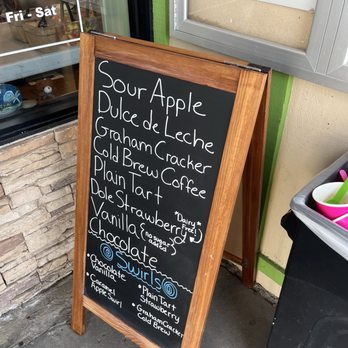 Fri - Sat
Sour Apple
Dulce de Leche
Graham Cracker
Cold Brew Coffee
Plain Tart
Dole Strawberry *Dairy Free*
Vanilla {no sugar added}
Chocolate
Swirls
• Chocolate Vanilla
• Caramel Apple Swirl
• Plain Tart Strawberry
• Graham Cracker Cold Brew